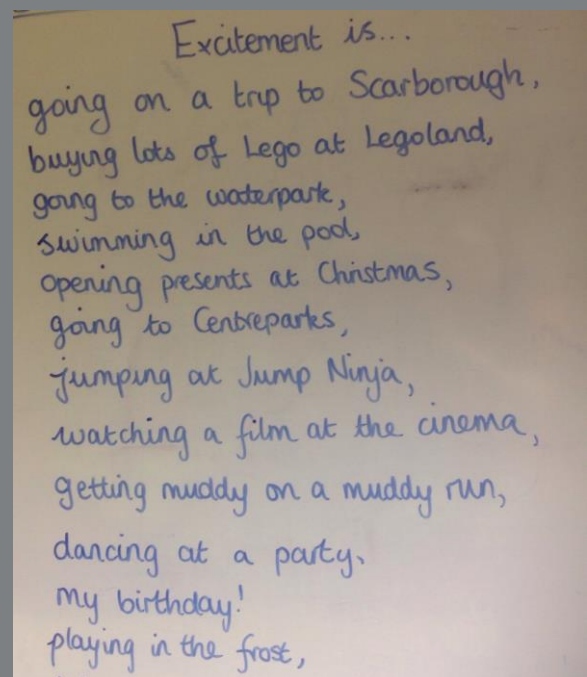 Excitement is...
going on a trip to Scarborough,
buying lots of Lego at Legoland,
going to the waterpark,
swimming in the pool,
opening presents at Christmas,
going to Centreparks,
jumping at Jump Ninja,
watching a film at the cinema,
getting muddy on a muddy run,
dancing at a party,
my birthday!
playing in the frost,